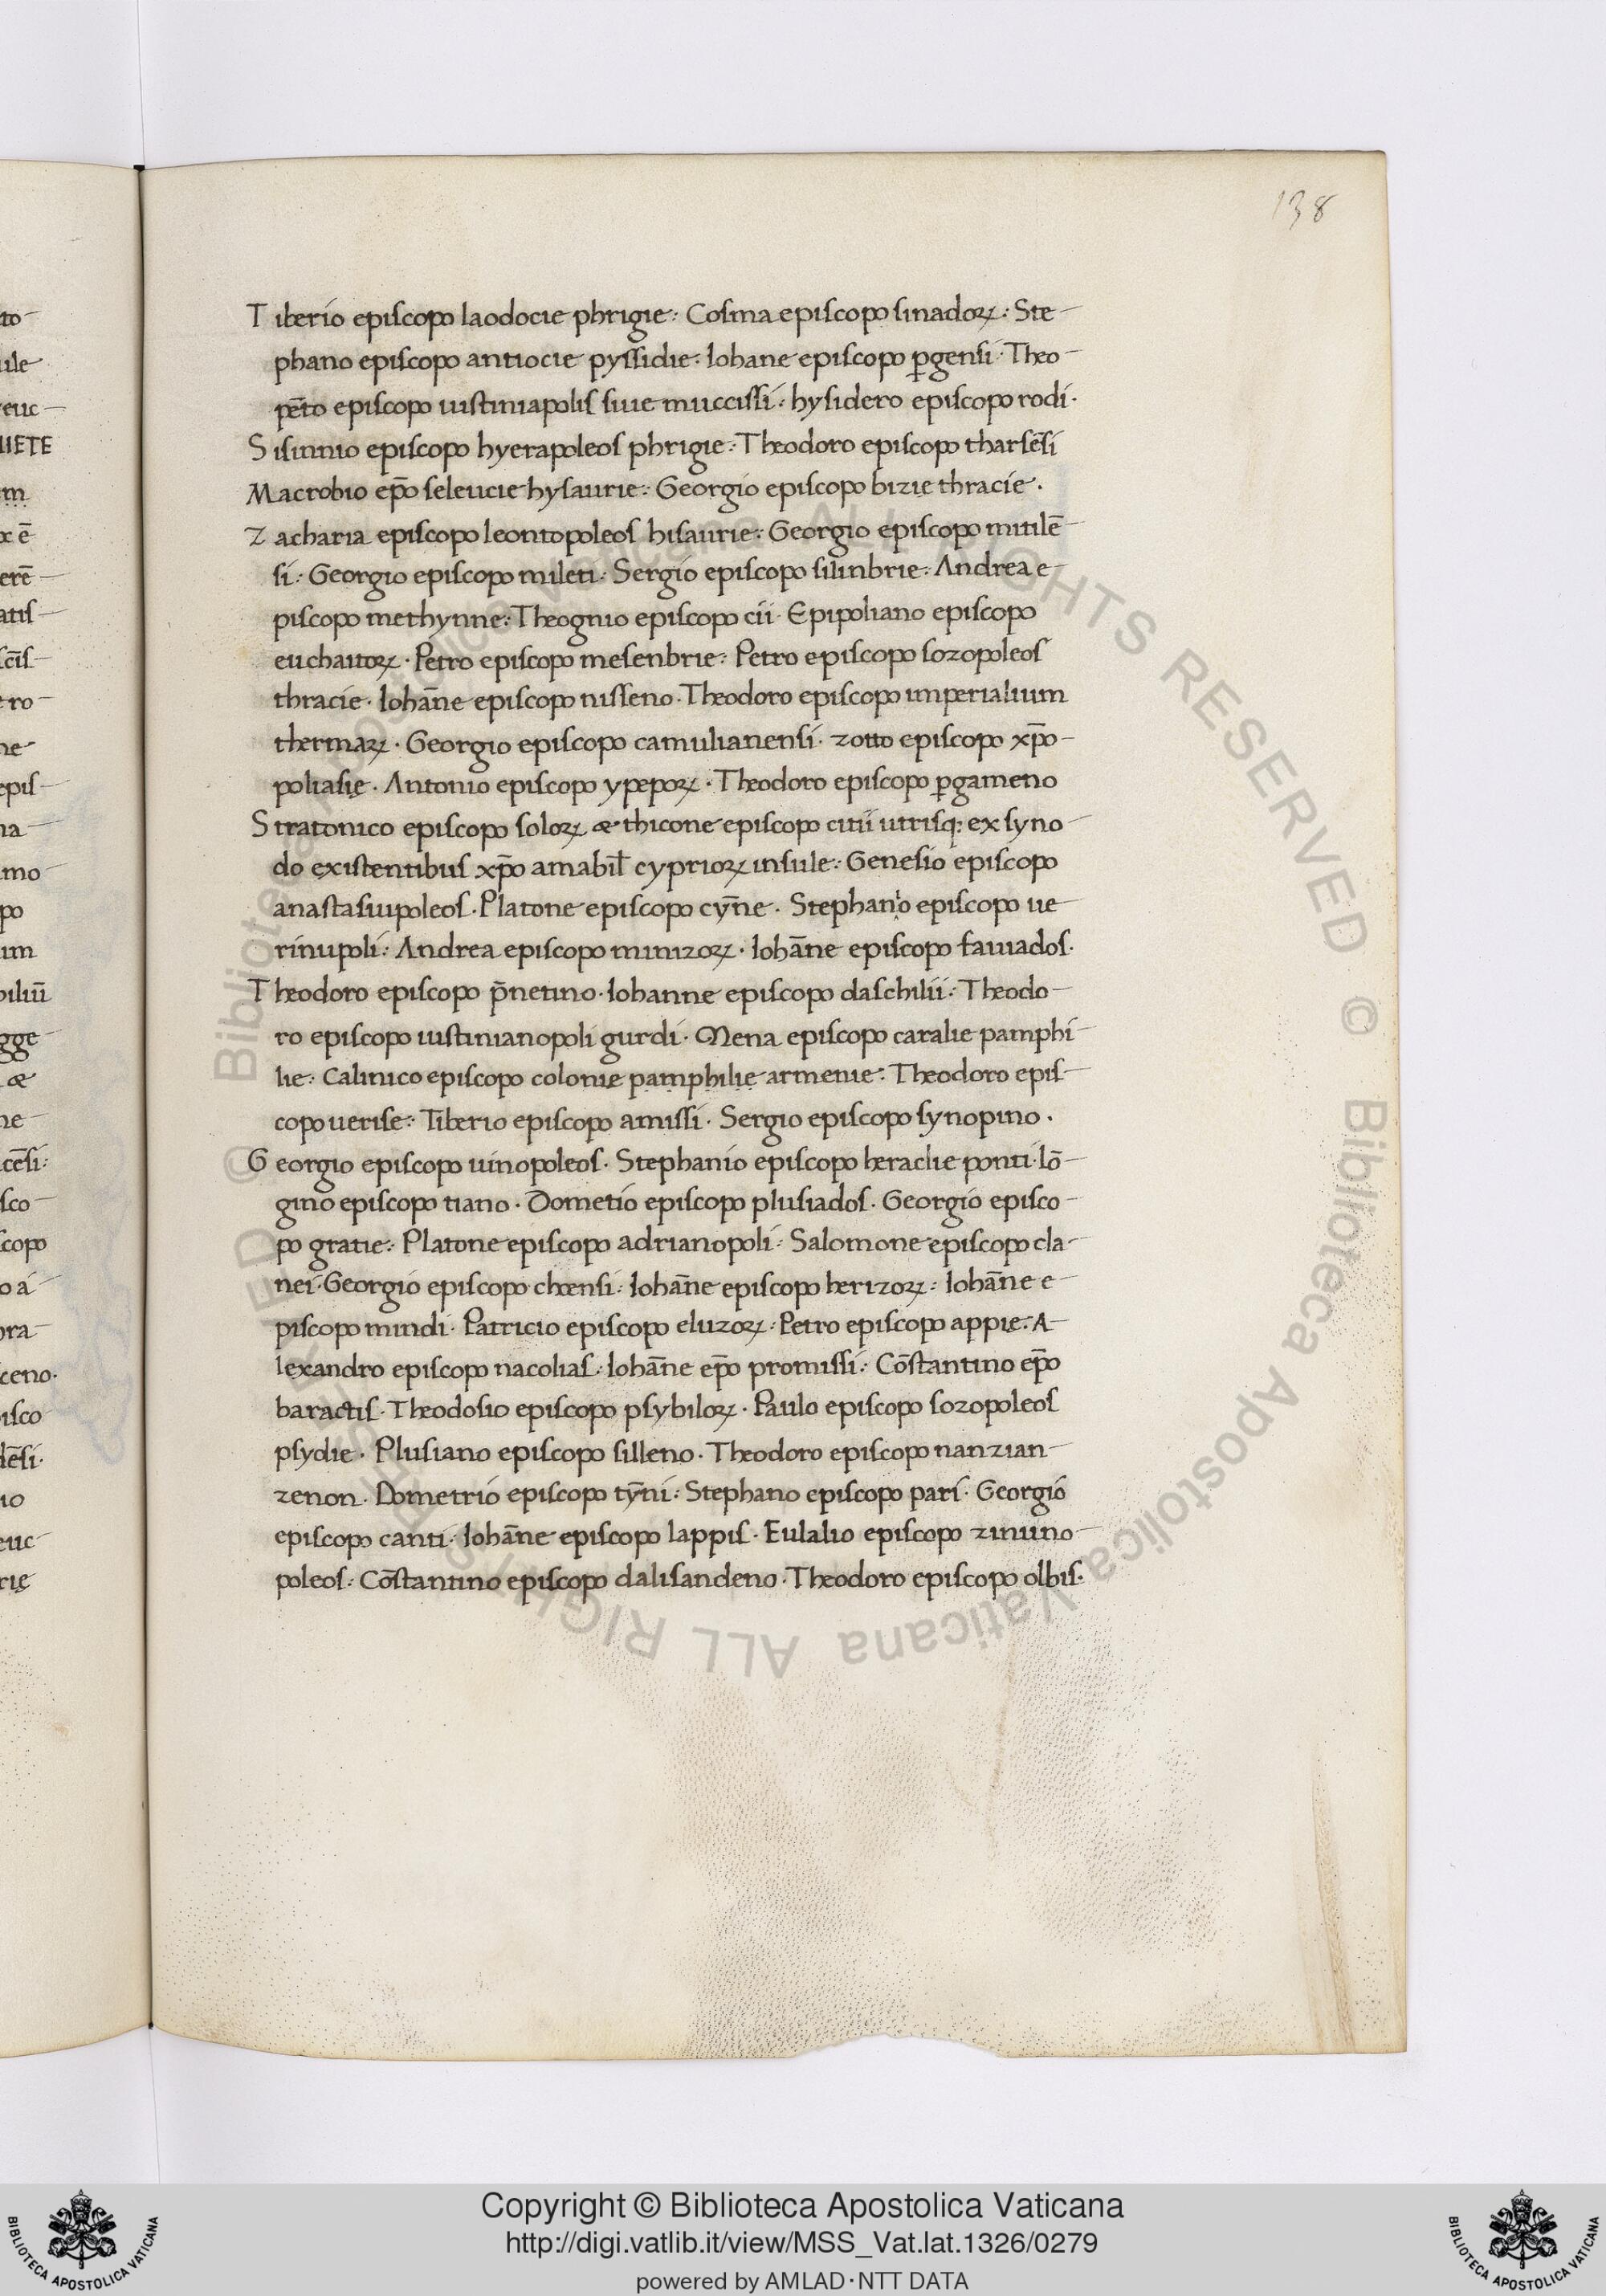 138
Tiberio episcopo laodocie phrigie: Cosma episcopo sinadoꝝ: Ste
phano episcopo antiocie pyssidie: Iohane episcopo ꝑgensi· Theo
pe̅to episcopo iustiniapolis siue muccissi: hysidero episcopo rodi·
Sisinnio episcopo hyerapoleos phrigie: Theodoro episcopo tharse̅si
Macrobio ep̅o seleucie hysaurie: Georgio episcopo bizie thracie·
Zacharia episcopo leontopoleos hisaurie: Georgio episcopo mitile̅
si: Georgio episcopo mileti: Sergio episcopo silinbrie: Andrea e
piscopo methynne: Theognio episcopo cii· Epipoliano episcopo
euchaitoꝝ· Petro episcopo mesenbrie: Petro episcopo sozopoleos
thracie· Ioha̅ne episcopo nisseno· Theodoro episcopo imperialium
thermaꝝ· Georgio episcopo camulianensi· zotto episcopo xp̅o
poliasię· Antonio episcopo ypepoꝝ· Theodoro episcopo ꝑgameno
Stratonico episcopo soloꝝ æ thicone episcopo citii utrisq; ex syno
do existentibus xp̅o amabil̅ cyprioꝝ insule: Genesio episcopo
anastasiupoleos· Platone episcopo cy̅ne· Stephanio episcopo ue
rinupoli: Andrea episcopo minizoꝝ· Ioha̅ne episcopo fauiados·
Theodoro episcopo p̅netino· Iohanne episcopo daschilii: Theodo
ro episcopo iustinianopoli gurdi· Mena episcopo caralie pamphi
lie: Calinico episcopo colonie pamphilie armenie: Theodoro epis
copo uerise: Tiberio episcopo amissi· Sergio episcopo synopino·
Georgio episcopo uinopoleos· Stephanio episcopo heraclie ponti· lo̅
gino episcopo tiano· Dometio episcopo plusiados· Georgio episco
po gratie: Platone episcopo adrianopoli: Salomone episcopo cla
nei· Georgio episcopo choensi: Ioha̅ne episcopo herizoꝝ: Ioha̅ne e
piscopo mindi· Patricio episcopo eluzoꝝ: Petro episcopo appię: A
lexandro episcopo nacolias: Ioha̅ne ep̅o promissi: Co̅stantino ep̅o
baractis· Theodosio episcopo psybiloꝝ· Paulo episcopo sozopoleos
psydie· Plusiano episcopo silleno· Theodoro episcopo nanzian
zenon· Dometrio episcopo ty̅ni: Stephano episcopo pari· Georgio
episcopo canti· Ioha̅ne episcopo lappis· Eulalio episcopo zinuno
poleos: Co̅stantino episcopo dalisandeno· Theodoro episcopo olbis·
Copyright © Biblioteca Apostolica Vaticana
http://digi.vatlib.it/view/MSS_Vat.lat.1326/0279
powered by AMLAD·NTT DATA